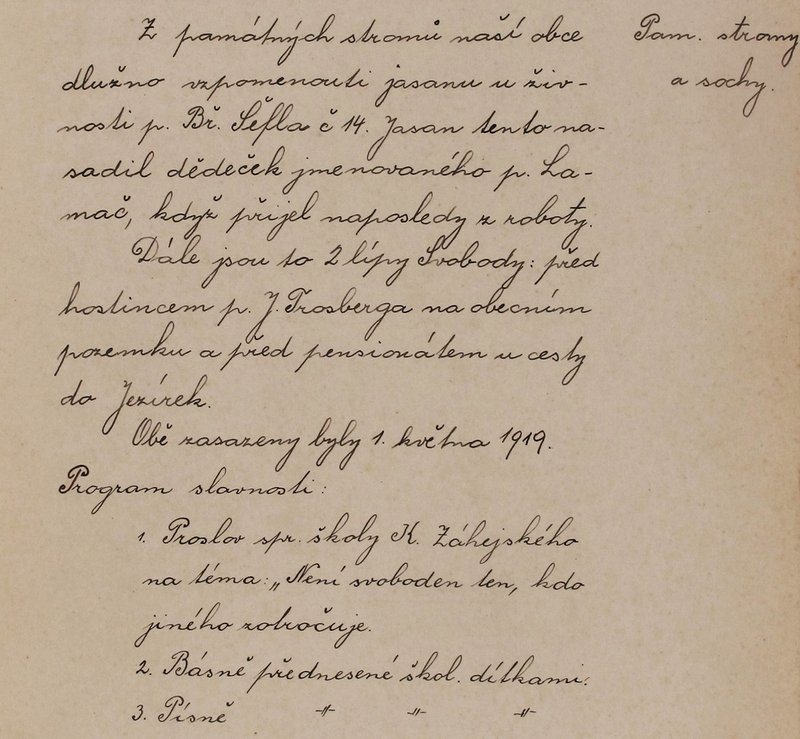 Z památných stromů naší obce
Pam. stromy
a sochy.
dlužno vzpomenouti jasanu u živ-
nosti p. Bř. Šéfla č 14. Jasan tento na-
sadil dědeček jmenovaného p. La-
mač, když přijel naposledy z roboty.
Dále jsou to 2 lípy Svobody: před
hostincem p. J. Trosberga na obecním
pozemku a před pensionátem u cesty
do Jezírek.
Obě zasazeny byly 1. května 1919.
Program slavnosti:
1. Proslov spr. školy K. Záhejského
na téma: „Není svoboden ten, kdo
jiného zotročuje.
2. Básně přednesené škol. dítkami.
3. Písně -"- -"- -"-